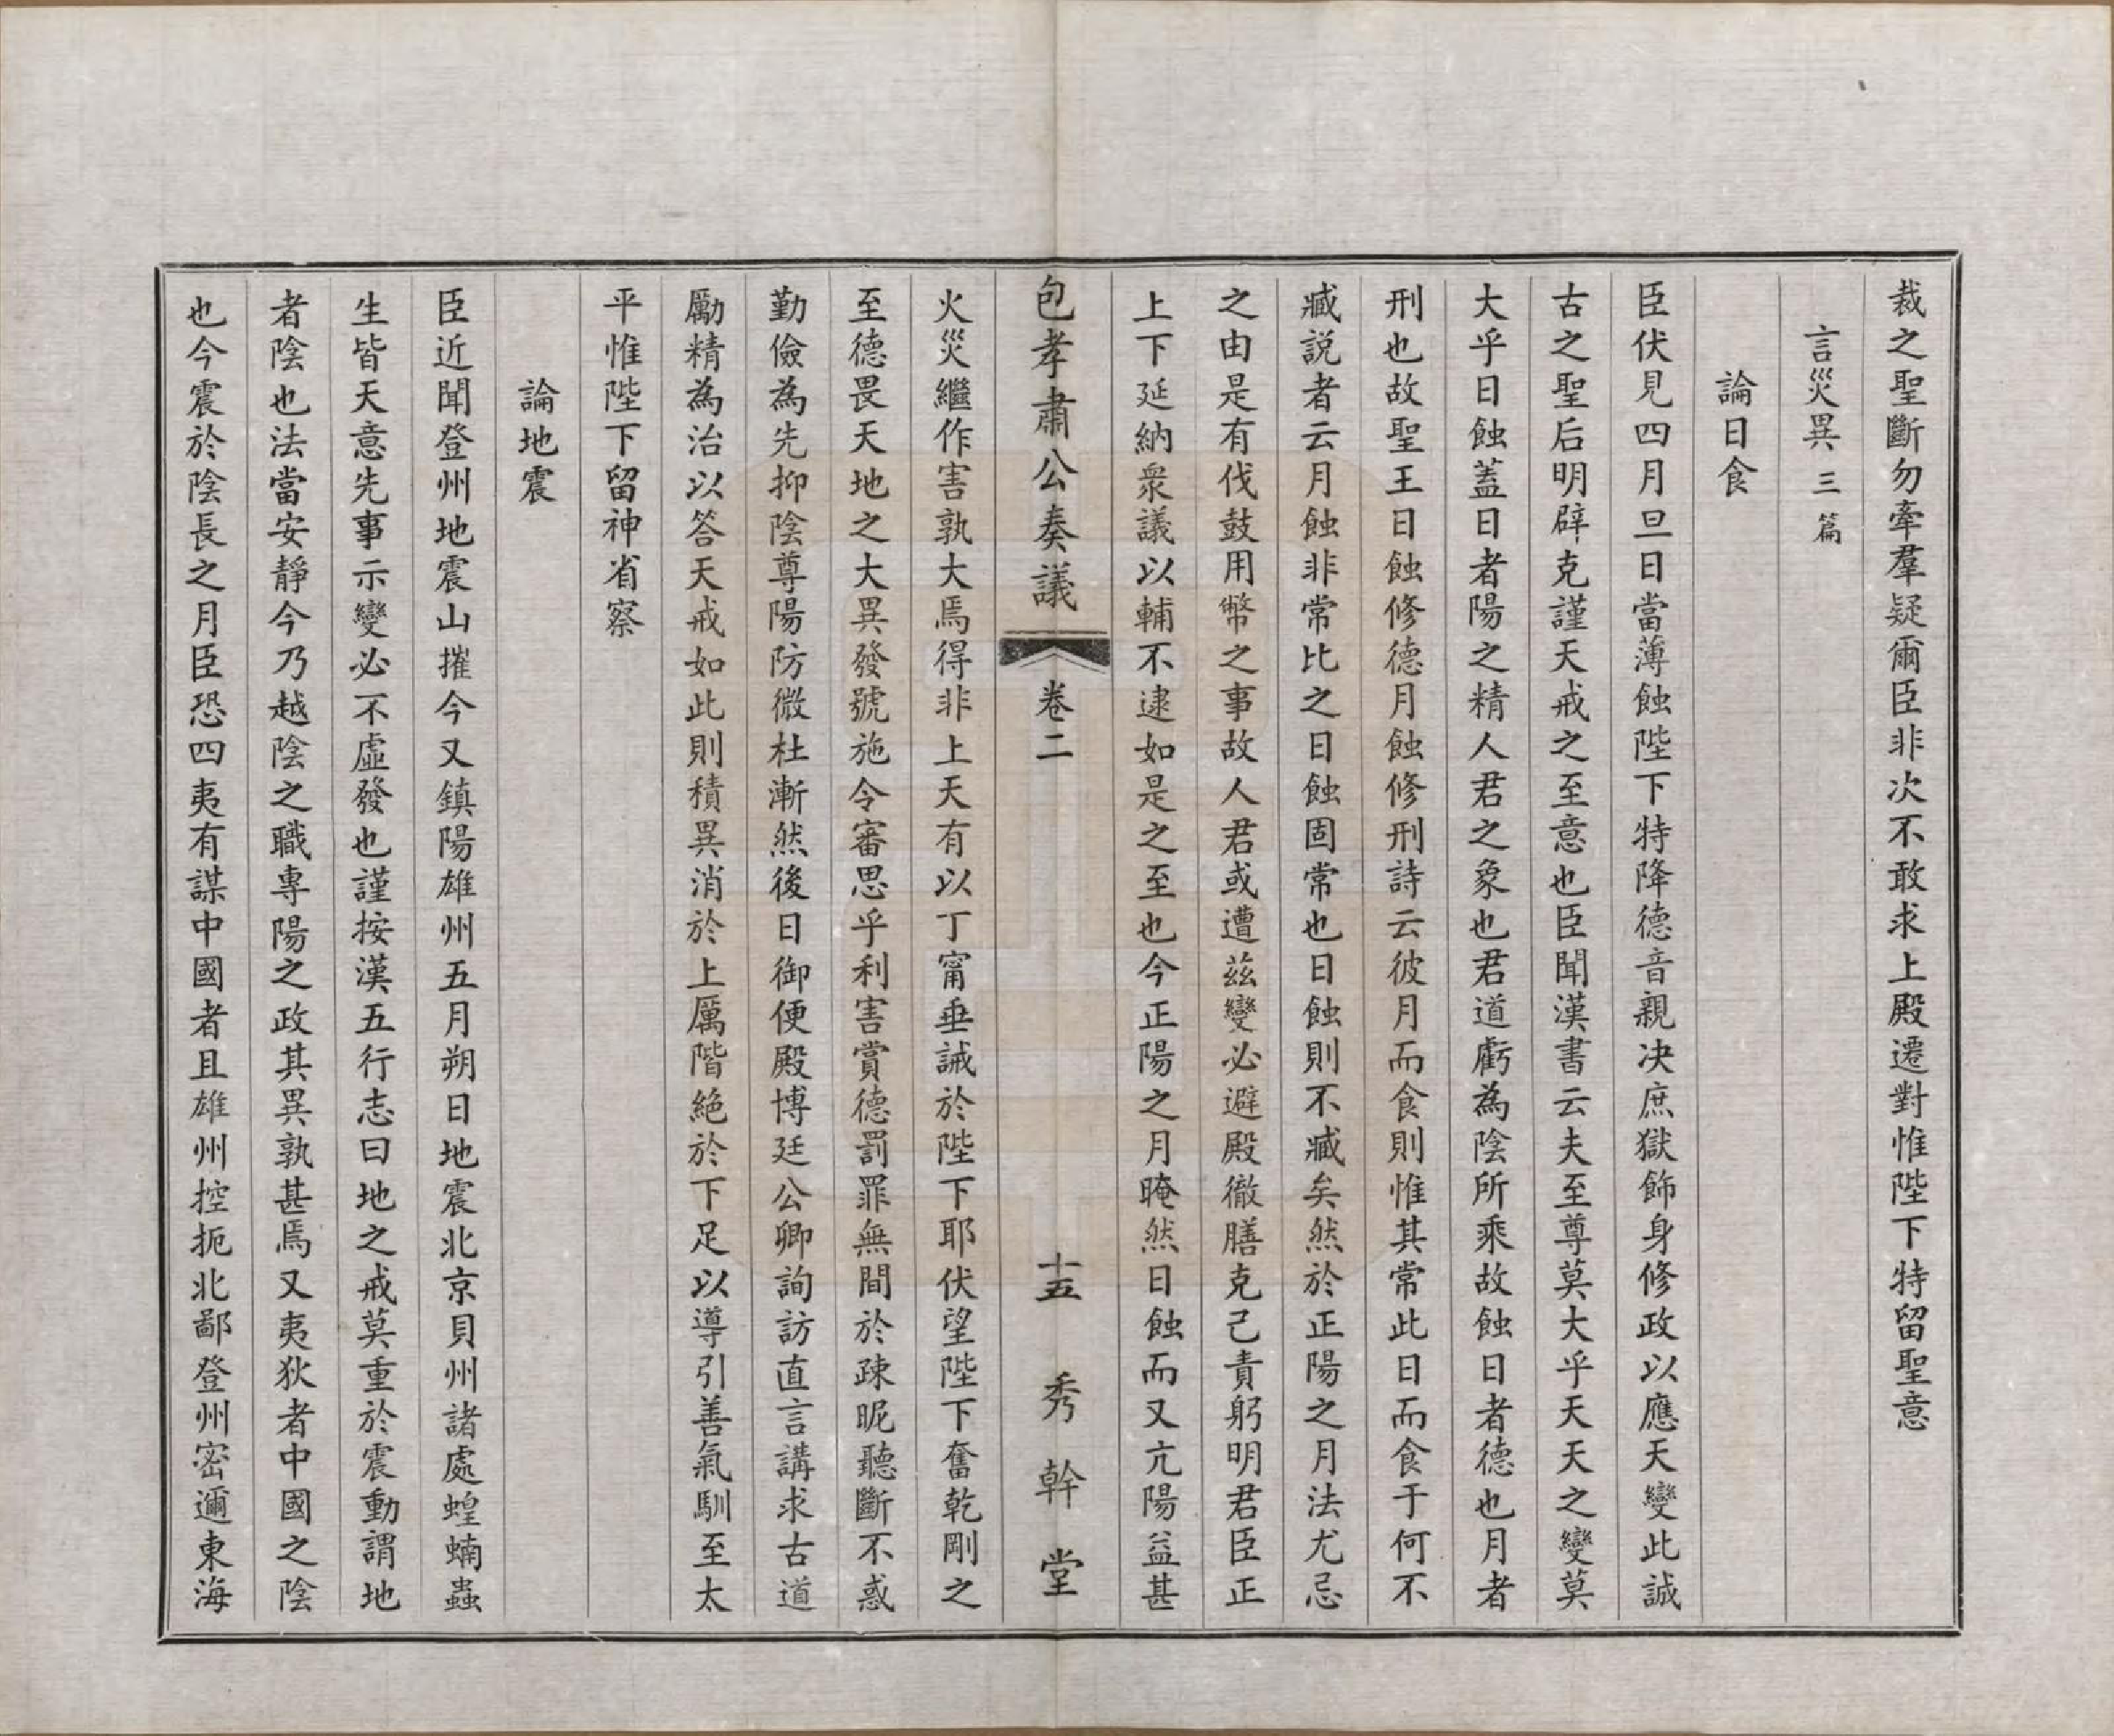 裁之聖斷勿牽羣疑爾臣非次不敢求上殿遷對惟陛下特留聖意
言災異三篇
論日食
臣伏見四月旦日當薄蝕陛下特降德音親决庶獄飾身修政以應天變此誠
古之聖后明辟克謹天戒之至意也臣聞漢書云夫至尊莫大乎天天之變莫
大乎日蝕蓋日者陽之精人君之象也君道虧為陰所乘故蝕日者德也月者
刑也故聖王日蝕修德月蝕修刑詩云彼月而食則惟其常此日而食于何不
臧説者云月蝕非常比之日蝕固常也日蝕則不臧矣然於正陽之月法尤忌
之由是有伐鼓用幣之事故人君或遭茲變必避殿徹膳克己責躬明君臣正
上下延納衆議以輔不逮如是之至也今正陽之月晻然日蝕而又亢陽益甚
包孝肅公奏議 卷二 十五 秀幹堂
火災繼作害孰大焉得非上天有以丁甯垂誡於陛下耶伏望陛下奮乾剛之
至德畏天地之大異發號施令審思乎利害賞德罰罪無間於疎昵聽斷不惑
勤儉為先抑陰尊陽防微杜漸然後日御便殿博廷公卿詢訪直言講求古道
勵精為治以答天戒如此則積異消於上厲階絶於下足以導引善氣馴至太
平惟陛下留神省察
論地震
臣近聞登州地震山摧今又鎮陽雄州五月朔日地震北京貝州諸處蝗蝻蟲
生皆天意先事示變必不虛發也謹按漢五行志曰地之戒莫重於震動謂地
者陰也法當安靜今乃越陰之職專陽之政其異孰甚焉又夷狄者中國之陰
也今震於陰長之月臣恐四夷有謀中國者且雄州控扼北鄙登州密邇東海